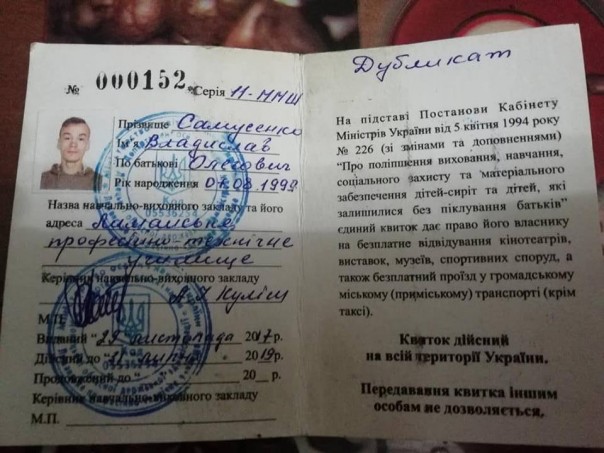 № 000152 * Серія 11-ММШ
Прізвище Самусенко
Ім'я Владислав
По батькові Олегович
Рік народження 07.08.1999
Назва навчально-виховного закладу та його
адреса
професійно технічне
училище
Керівник навчально-виховного закладу
А І Куліш
М.П.
Виданий "29" листопада 2017 р.
Дійсний до " 2019 р.
Продовжений до " " 20 р.
Керівник навчально-виховного закладу
М.П.
05536234
Дубликат
На підставі Постанови Кабінету
Міністрів України від 5 квітня 1994 року
№ 226 (зі змінами та доповненнями)
"Про поліпшення виховання, навчання,
соціального захисту та матеріального
забезпечення дітей-сиріт та дітей, які
залишилися без піклування батьків"
єдиний квиток дає право його власнику
на безплатне відвідування кінотеатрів,
виставок, музеїв, спортивних споруд, а
також безплатний проїзд у громадському
міському (приміському) транспорті (крім
таксі).
Квиток дійсний
на всій території України.
Передавання квитка іншим
особам не дозволяється.